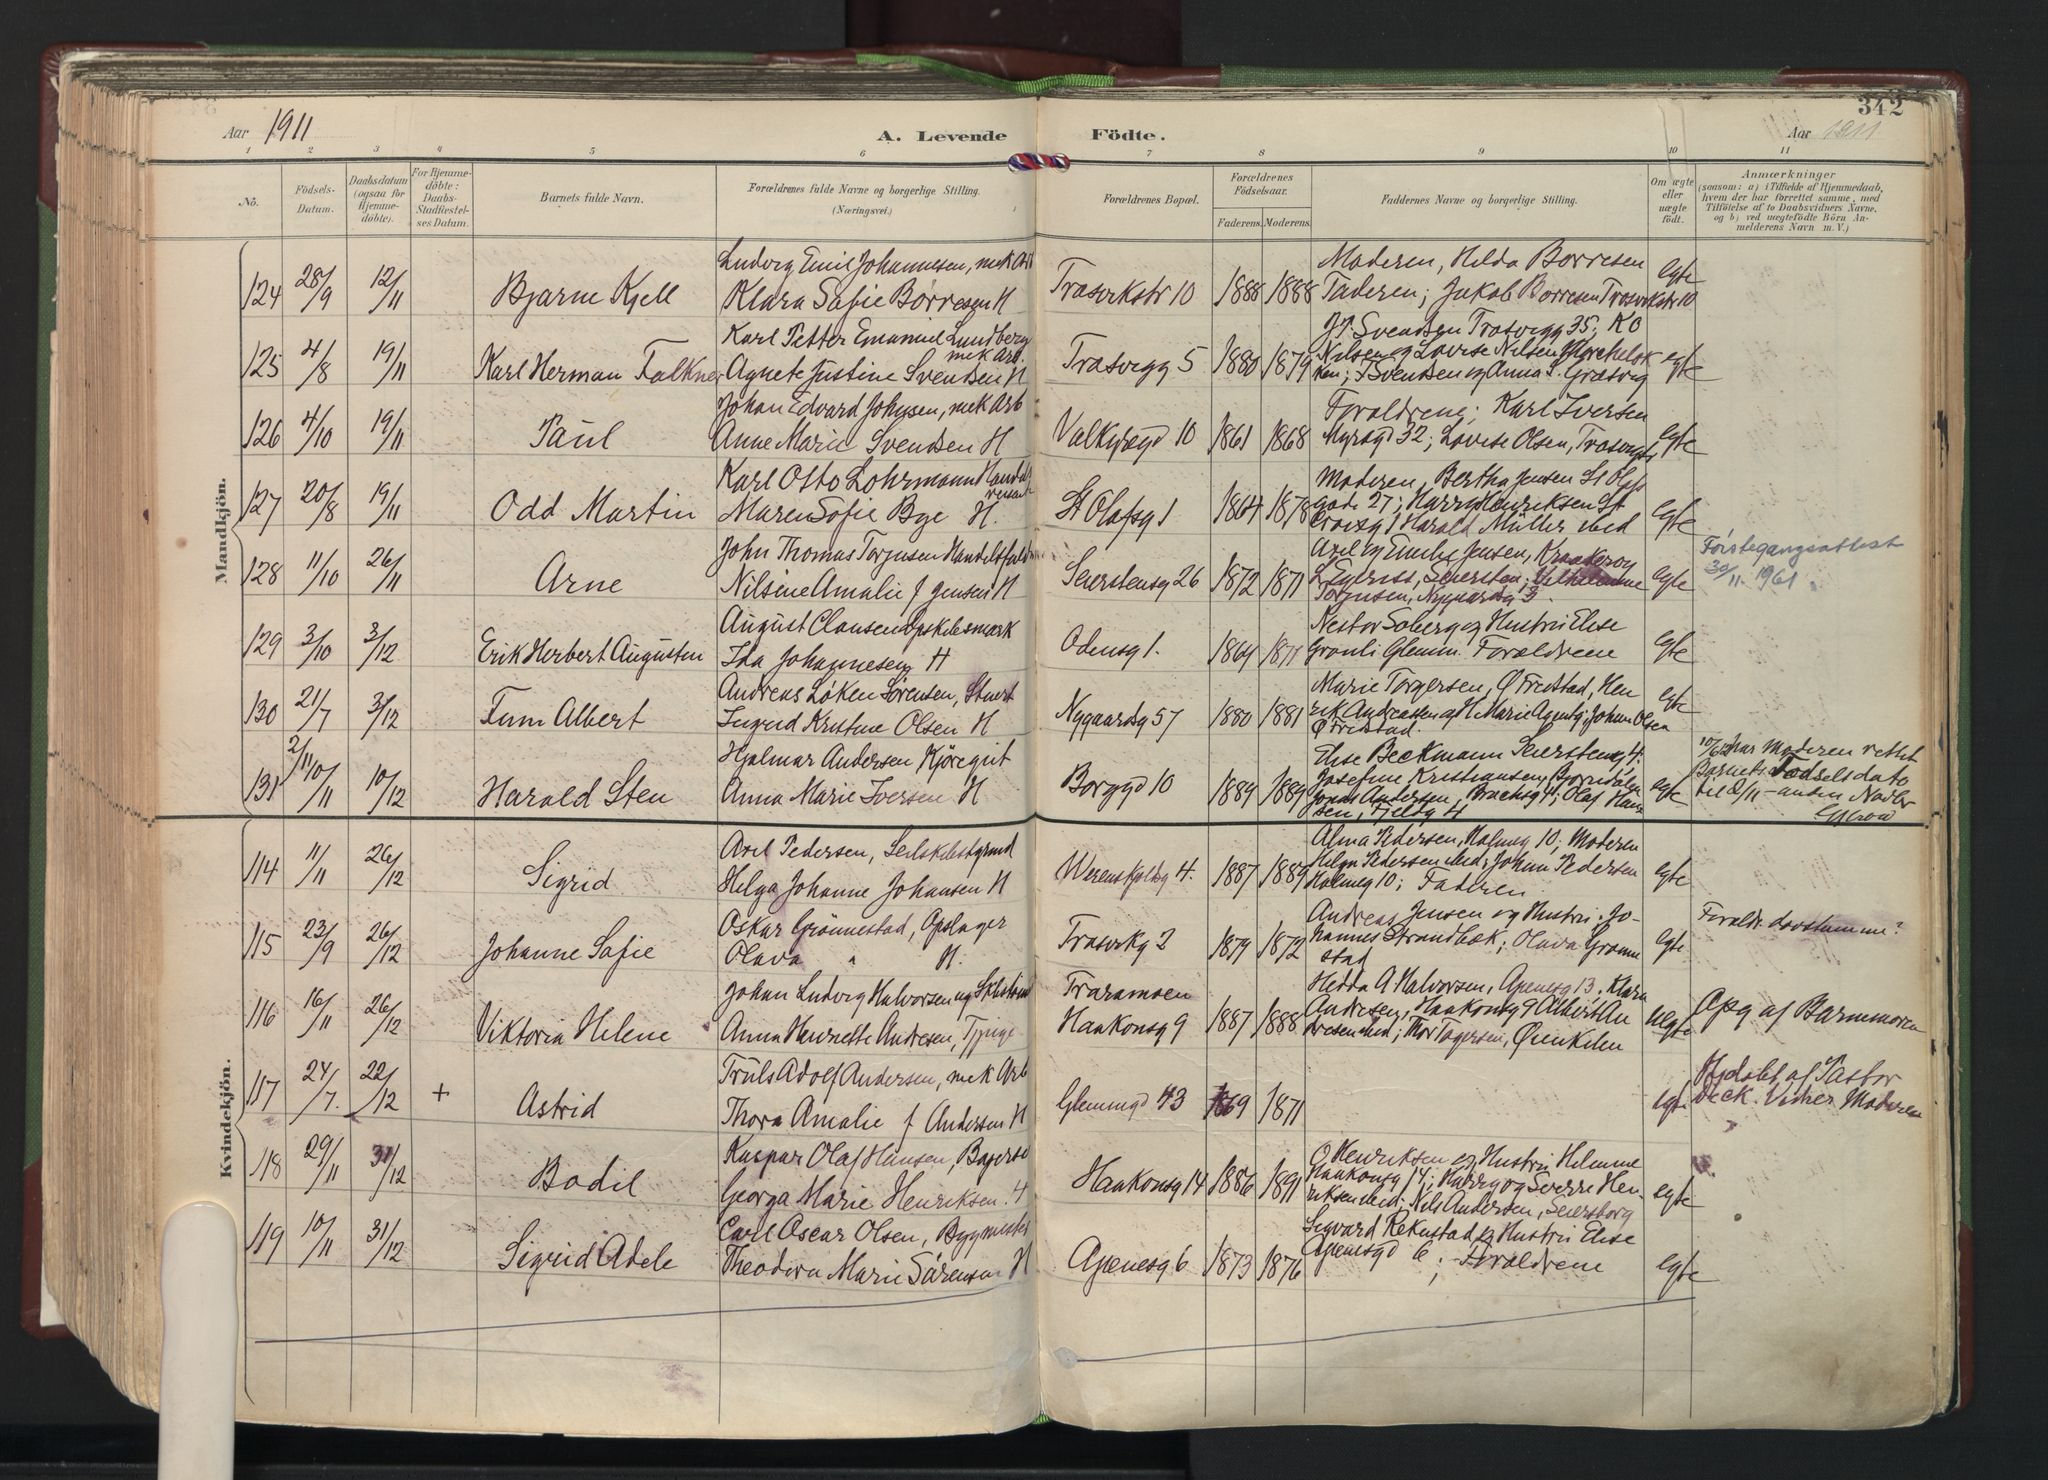 342
Aar 1911
A. Levende Födte.
Aar 1911
1 2 3 4 5 6 7 8 9 10 11
Nö.
Födsels-Datum.
Daabsdatum (ogsaa for Hjemmedöbte).
For Hjemmedöbte: Daabs-Stadfæstelses Datum.
Barnets fulde Navn.
Forældrenes fulde Navne og borgerlige Stilling.
(Næringsvei.)
Forældrenes Bopæl.
Forældrenes Födselsaar.
Faderens. Moderens.
Faddernes Navne og borgerlige Stilling.
Om ægte eller uægte födt.
Anmærkninger
(saasom: a) i Tilfælde af Hjemmedaab, hvem der har forrettet samme, med Tilföielse af to Daabsvidners Navne, og b) ved uægtefödte Börn Anmelderens Navn m. V.)
Mandkjön.
124 28/9 12/11 Bjarne Kjell
Ludvig Emil Johannesen, mek Arb
Klara Sofie Börresen H
Trosvikstr 10 1888 1888
Moderen, Hilda Borresen
Faderen; Jakob Borresen Trosvikstr 10
egte
125 4/8 19/11 Karl Herman Falkner
Karl Petter Emanuel Lundberg
mek Arb.
Agnete Justine Svendsen H
Trosvigg 5 1880 1879
Svendsen Trosvigg 35; K O
Nilsen og Lovise Nilsen
Svendsen og Anna S. Græsvig
egte
126 4/10 19/11 Paul
Johan Edvard Johnsen, mek Arb
Anne Marie Svendsen H
Valkyrgd 10 1861 1868
Foraldrene; Karl Iversen
Myrgd 32; Lovise Olsen,
egte
127 20/8 19/11 Odd Martin
Karl Otto Lohrmann Handels
Maren Sofie Bye H.
St Olafsg 1 1864 1878
Moderen, Bertha Jensen St Olafs
gad. 27; Harry Henriksen St
Croixg 1 Harald Müller ibid
egte
128 11/10 26/11 Arne
John Thomas Torjusen
Nilsine Amalie f Jensen H
Seierstensg 26 1872 1871
Axel og Emilie Jensen, Kraakeroy
Seiersten; Vilhelmine
Torjusen, Nygaardsg 3.
egte
Förstegangsattest
30/11. 1961
129 3/10 3/12 Erik Herbert Augusten
August Clausen
Ida Johannesen H
Odensg 1. 1864 1871
Nestor Soberg og Hustru Elise
Gronli Glemm. Foraldrene
egte
130 21/7 3/12 Finn Albert
Andreas Löken Sörensen, Stuert
Ingrid Kristine Olsen H
Nygaardsg 57 1880 1881
Marie Torgersen, Ø Fredstad, Hen
rik Andreassen og H Marie Johan Olsen
Ø Fredstad.
egte
131 2/11 10/11 10/12 Harald Sten
Hjalmar Andersen Kjöregut
Anna Marie Iversen H
Borggd 10 1889 1889
Elise Beckmann Seierstensg 4.
Josefine Kristiansen,
Jonas Andersen, Brochsg 4; Olaf Han
sen, Fjeldg 4
egte
har Moderen rettet
Barnets Fødselsdato
til 2/11
Kvindekjön.
114 11/11 26/12 Sigrid
Axel Pedersen,
Helga Johanne Johansen H
Werenskjoldsg 4. 1887 1889
Alma Pedersen, Holmeg 10; Moderen
Helga Pedersen ibid; Johan Pedersen
Holmeg 10; Faderen
egte
115 23/9 26/12 Johanne Sofie
Oskar Grönnestad, Opslager
Olava " H.
Trosvikg 2 1879 1872
Andreas Jensen og Hustru; Jo-
hannes Strandbæk; Olava Gronne
stad
egte
Foraldr. dovstumme?
116 16/11 26/12 Viktoria Helene
Johan Ludvig Halvorsen
Anna Henriette Andresen,
Haakonsg 9 1887 1888
Hedda A Halvorsen, Apenesg 13, Klara
Andresen, Haakonsg 9 Albert An
dresen ibid;
uegte
Opg af Barnemoren
117 24/7. 22/12 + Astrid
Truls Adolf Andersen, mek Arb
Thora Amalie f Andersen H
Glemmgd 43 1869 1871
egte
Hjdöbt af Pastor
Beck. Vidner Moderen
118 29/11 31/12 Bodil
Kaspar Olaf Hansen,
Georga Marie Henriksen. H
Haakonsg 14 1886 1891
O Henriksen og Hustru Helmine
Haakonsg 14; Harry og Sverre Hen-
riksen ibid; Nils Andersen, Seiersborg
egte
119 10/11 31/12 Sigrid Adele
Carl Oscar Olsen, Bygmester
Theodora Marie Sörensen H
Apenesg 6 1873 1876
Sigvard Rekustad og Hustru Elise
Apenesgd 6; Foraldrene
egte